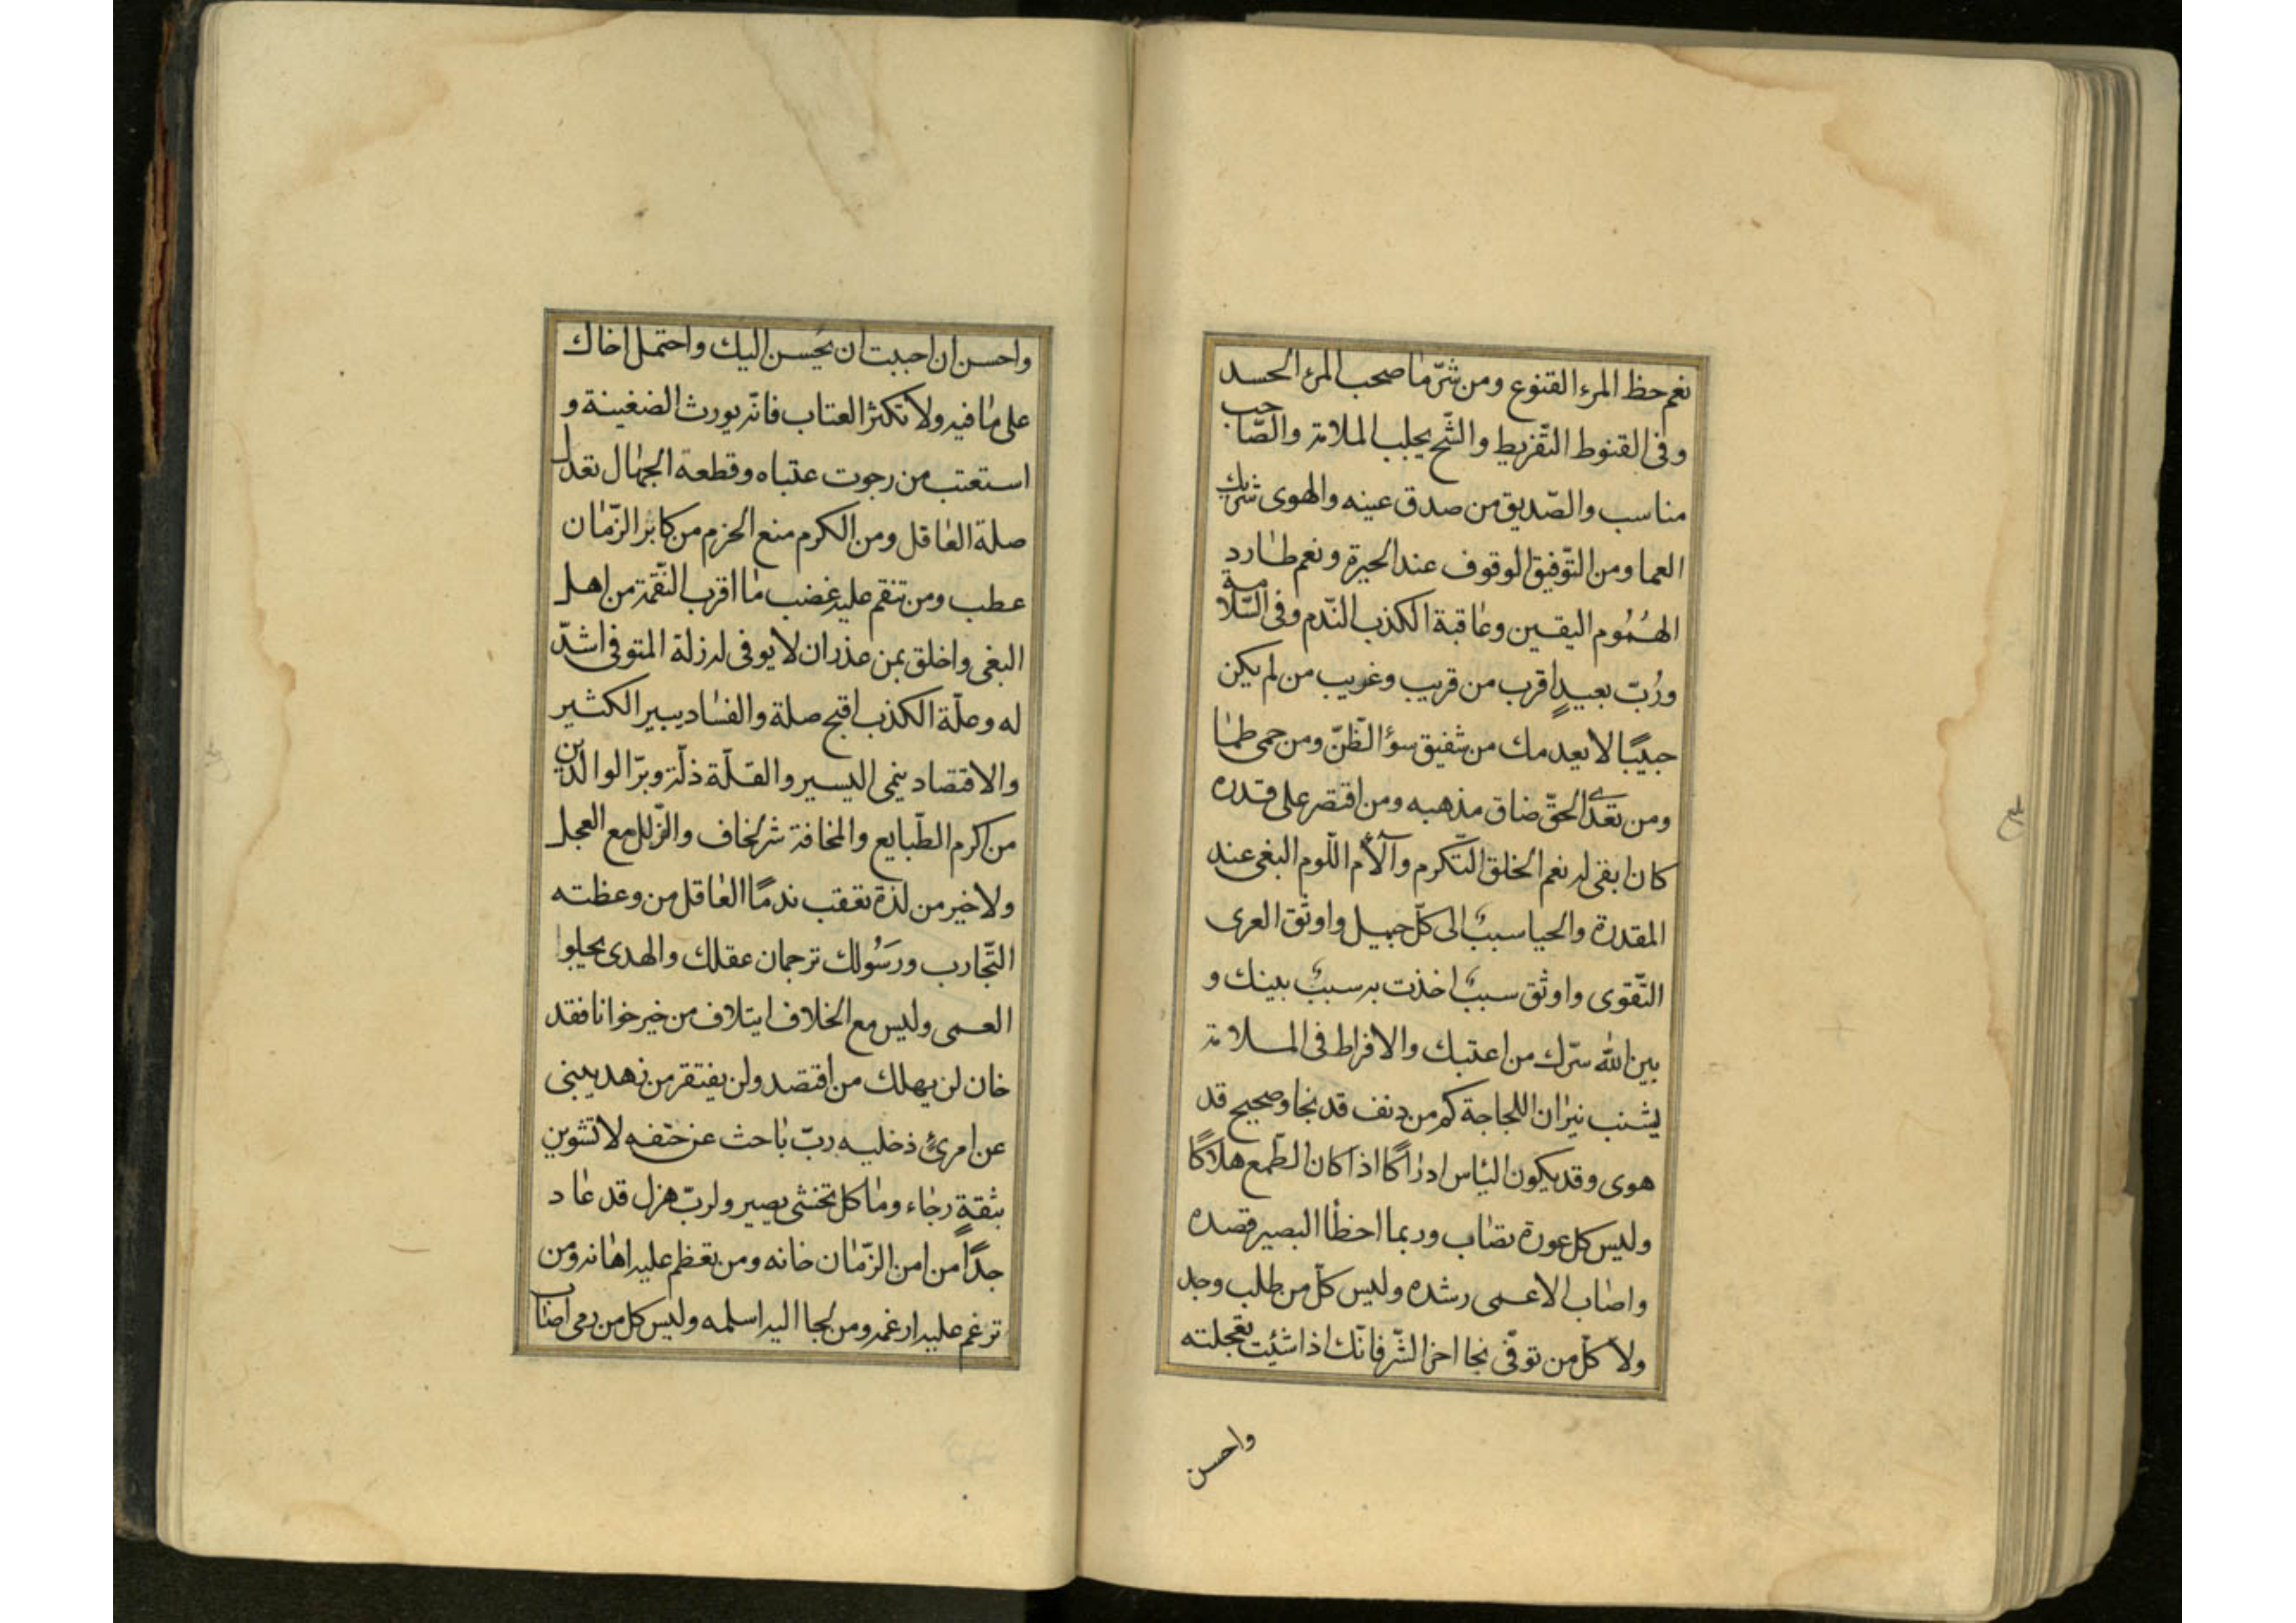 نعم حظ المرء القنوع ومن شرّ ما صحب المرء الحسد
وفى القنوط التّفريط والشّح يجلب الملامة والصّاحب
مناسب والصّديق من صدق عينه والهوى شريك
العما ومن التّوفيق الوقوف عند الحيرة ونعم طارد
الهُمُوم اليقين وعاقبة الكذب النّدم وفى السّلامة
ورُبّ بعيدٍ اقرب من قريب وغريب من لم يكن
حبيبًا لا يعدمك من شفيق سؤ الظّنّ ومن حمى طما
ومن تعدّى الحقّ ضاق مذهبه ومن اقتصر على قدره
كان ابقى له نعم الخلق التّكرم وآلأم اللّوم البغى عند
المقدرة والحيا سببٌ الى كلّ جميل واوثق العرى
التّقوى واوثق سببٌ اخذت به سببٌ بينك و
بين الله سرّك من اعتبك والافراط فى الملامة
يشب نيران اللجاجة كم من دنف قد نجا وصحيح قد
هوى وقد يكون الياس ادراكًا اذا كان الطّمع هلاكًا
وليس كل عورة تصاب وربما اخطأ البصير قصده
واصاب الاعمى رشده وليس كلّ من طلب وجد
ولا كلّ من توقّى نجا اخر الشّر فانّك اذا شئت تعجلته
واحسن
واحسن ان احببت ان يحسن اليك واحتمل اخاك
على ما فيه ولا تكثر العتاب فانّه يورث الضغينة و
استعتب من رجوت عتباه وقطعة الجهال تعدل
صلة العاقل ومن الكرم منع الحزم من كابر الزّمان
عطب ومن تنقم عليه غضب ما اقرب النّقمة من اهل
البغى واخلق بمن عذر ان لا يوفى له زلة المتوفى اشدّ
له وعلّة الكذب اقبح صلة والفساد يبير الكثير
والاقتصاد ينمى اليسير والقلّة ذلّة وبرّ الوالدين
من اكرم الطّبايع والمخافة شر لخاف والزّلل مع العجل
ولا خير من لذة تعقب ندمًا العاقل من وعظته
التّجارب ورسُولك ترجمان عقلك والهدى يجلوا
العمى وليس مع الخلاف ايتلاف من خير خوانا فقد
خان لن يهلك من اقتصد ولن يفتقر من زهد يبنى
عن امرئٍ دخليه ربّ باحث عن حتفه لا تشوبن
بثقةٍ رجاء وما كل تخشى يصير ولربّ هزل قد عاد
جدًّا من امن الزّمان خانه ومن تعظم عليه اهانه ومن
ترغم عليه ارغمه ومن لجا اليه اسلمه وليس كل من رمى اصاب